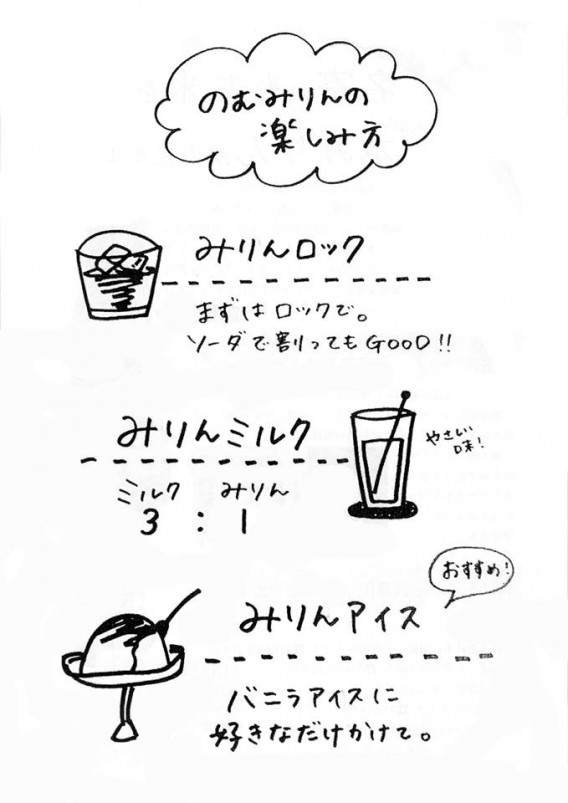 のむみりんの
楽しみ方
みりんロック
まずはロックで。
ソーダで割ってもGOOD!!
みりんミルク
やさしい
味!
ミルク みりん
3 : 1
おすすめ!
みりんアイス
バニラアイスに
好きなだけかけて。